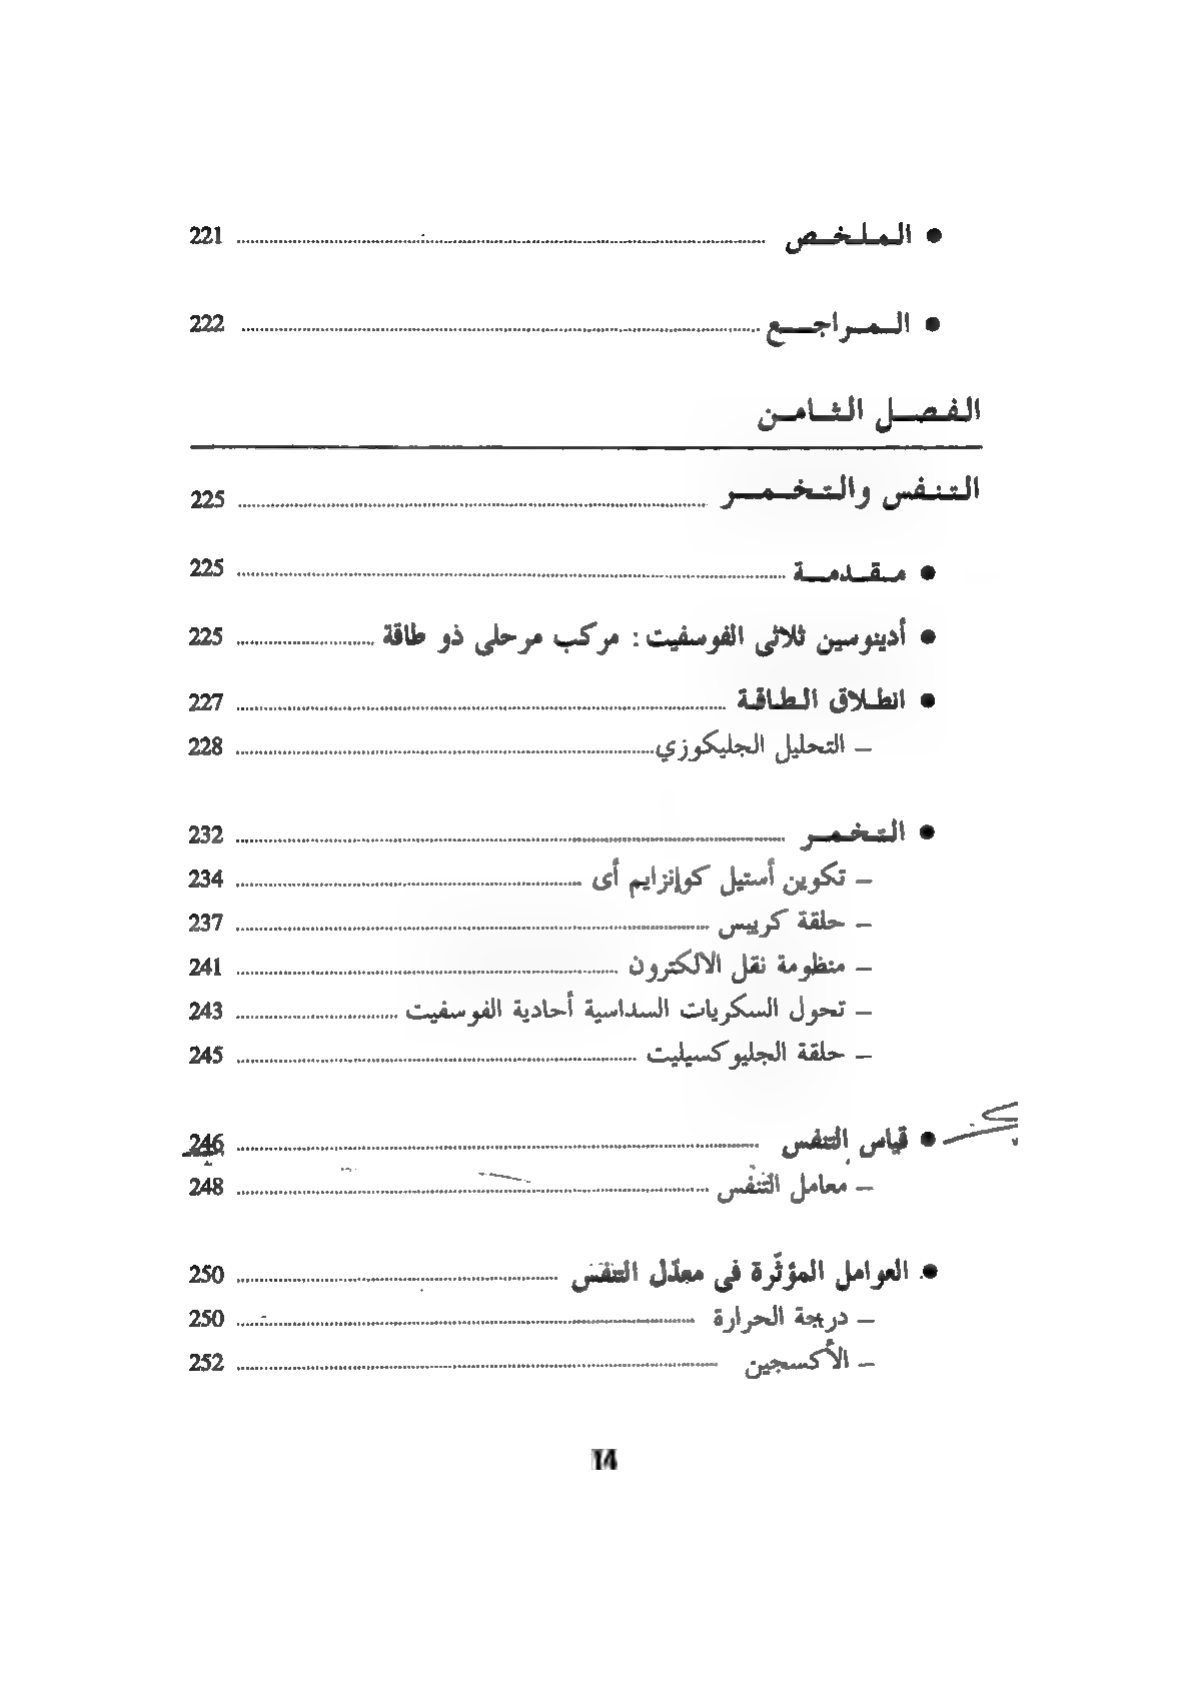 ● الملخص ........ 221
● المراجع ........ 222
الفصل الثامن
التنفس والتخمر ........ 225
● مقدمة ........ 225
● أدينوسين ثلاثى الفوسفيت : مركب مرحلى ذو طاقة ........ 225
● انطلاق الطاقة ........ 227
– التحليل الجليكوزي ........ 228
● التخمر ........ 232
– تكوين أستيل كوإنزايم أى ........ 234
– حلقة كريبس ........ 237
– منظومة نقل الالكترون ........ 241
– تحول السكريات السداسية أحادية الفوسفيت ........ 243
– حلقة الجليوكسيليت ........ 245
● قياس التنفس ........ 246
– معامل التنفس ........ 248
● العوامل المؤثّرة فى معدّل التنفس ........ 250
– درجة الحرارة ........ 250
– الأكسجين ........ 252
14